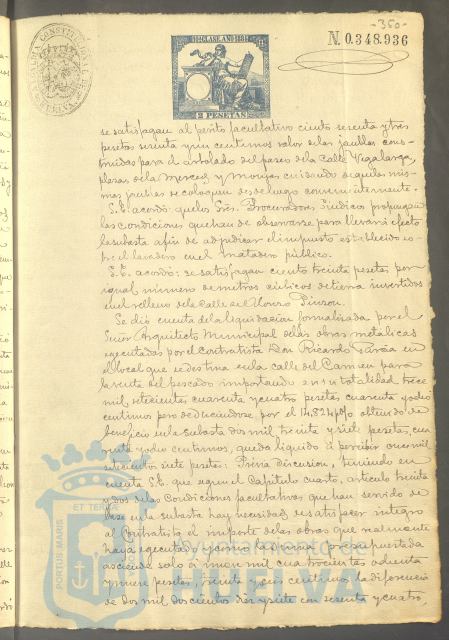 -350-
ALCALDIA CONSTITUCIONAL
HUELVA
CLASE
AÑO 1881
2 PESETAS
N. 0.348.936
se satisfagan al perito facultativo ciento sesenta y tres
pesetas sesenta y un centimos valor de las jaulas cons-
truidas para el arbolado del paseo de la Calle Vegalarga,
plazas de la Merced y Monjas cuidando de que las mis-
mas jaulas se coloquen desde luego convenientemente.
S.E. acordó: que los Sres. Procuradores Sindicos propongan
las condiciones que han de observarse para llevar á efecto
la subasta afin de adjudicar el impuesto establecido so-
bre el lavadero en el matadero público.
S.E. acordó: se satisfagan ciento treinta pesetas por
igual número de metros cúbicos de tierra invertidos
en el relleno de la Calle del Alonso Pinzon.
Se dió cuenta de la liquidacion formalizada por el
Señor Arquitecto Municipal de las obras metálicas
ejecutadas por el contratista Don Ricardo Garcia en
el local que se destina en la calle del Carmen para
la venta del pescado importando en su totalidad trece
mil setecientas cuarenta y cuatro pesetas cuarenta y ocho
centimos pero deduciendose por el 14,824 p% obtenido de
beneficio en la subasta dos mil treinta y siete pesetas, cua
renta y ocho centimos, queda liquido á percibir once mil
setecientos siete pesetas: Previa discusion, teniendo en
cuenta S.E. que segun el Capitulo cuarto, articulo treinta
y dos de las Condiciones facultativas que han servido de
base en la subasta hay necesidad de satisfacer integro
al Contratista el importe de las obras que realmente
haya ejecutado y como la suma presupuestada
asciende solo á nueve mil cuatrocientos ochenta
y nueve pesetas, treinta y seis centimos, la diferencia
de dos mil doscientos diez y siete con sesenta y cuatro
PORTUS MARIS
ET TERRAE
Ayuntamiento de
HUELVA